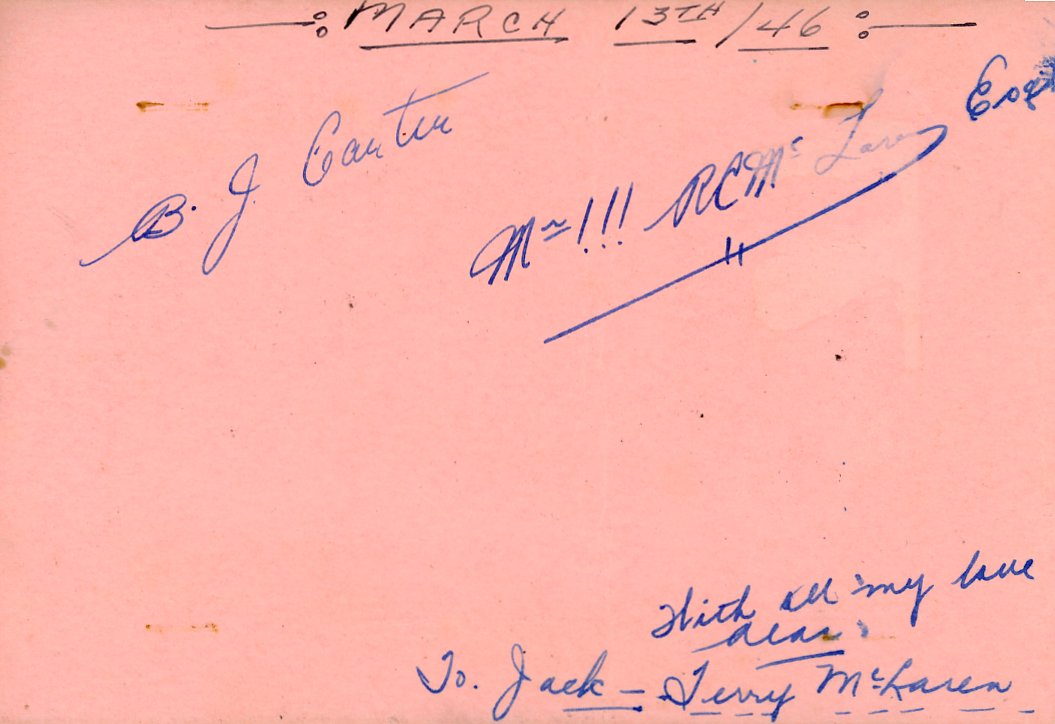 —: MARCH 13TH/46 :—
B. J. Carter
Mr!!! RCMc Laren Esq
With all my love
dear,
To. Jack – Terry McLaren